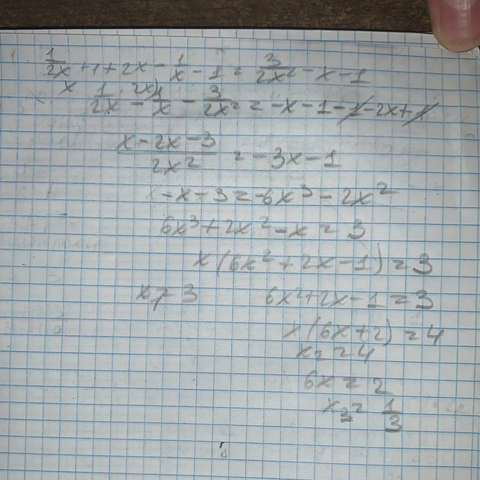 1/2x + 1 + 2x - 1/x - 1 = 3/2x² - x - 1
1/2x - 1/x - 3/2x² = -x - 1 - 1 - 2x + 1
x - 2x - 3 / 2x² = -3x - 1
-x - 3 = -6x³ - 2x²
6x³ + 2x² - x = 3
x(6x² + 2x - 1) = 3
x₁ = 3 6x² + 2x - 1 = 3
x(6x + 2) = 4
x₂ = 4
6x = 2
x₃ = 1/3